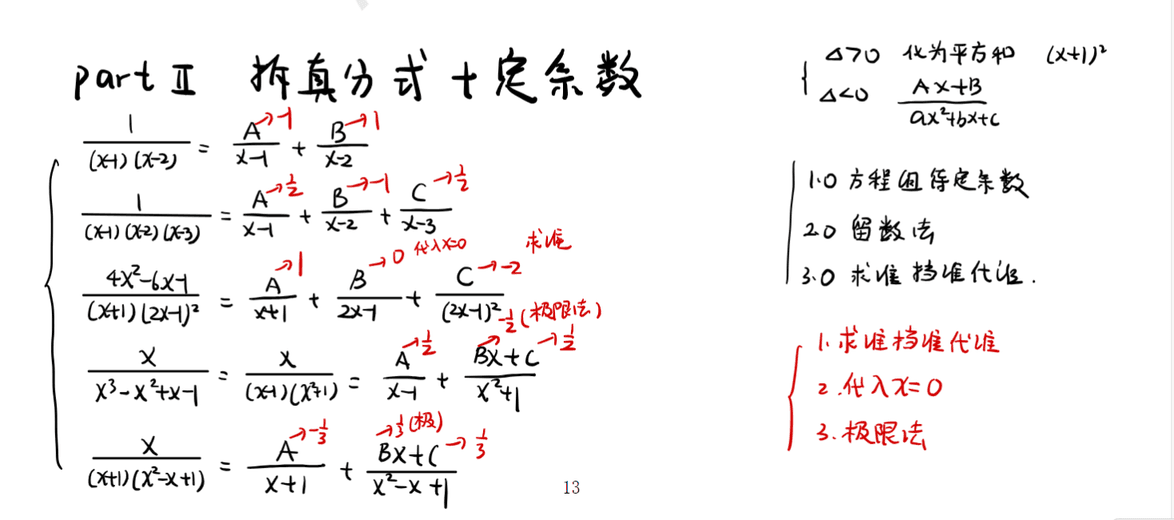 part Ⅱ 拆真分式+定系数
1/((x-1)(x-2)) = A/(x-1) + B/(x-2) A→-1 B→1
1/((x-1)(x-2)(x-3)) = A/(x-1) + B/(x-2) + C/(x-3) A→1/2 B→-1 C→1/2
(4x²-6x-1)/((x+1)(2x-1)²) = A/(x+1) + B/(2x-1) + C/(2x-1)² A→1 B→0 代入x=0 C→-2 求谁
x/(x³-x²+x-1) = x/((x-1)(x²+1)) = A/(x-1) + (Bx+C)/(x²+1) A→1/2 B→-1/2(极限法) C→1/2
x/((x+1)(x²-x+1)) = A/(x+1) + (Bx+C)/(x²-x+1) A→-1/3 B→1/3(极) C→1/3
13
△>0 化为平方和 (x+1)²
△<0 (Ax+B)/(ax²+bx+c)
1.0 方程组待定系数
2.0 留数法
3.0 求谁挡谁代谁.
1. 求谁挡谁代谁
2. 代入x=0
3. 极限法